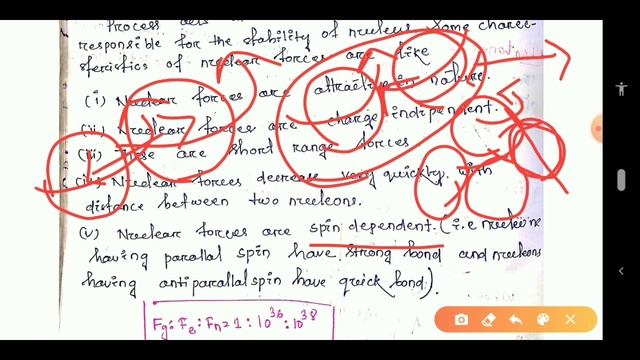 Process acts
responsible for the stability of nucleus. Some charec-
steristics of nuclear forces are like
(i) Nuclear forces are attractive in nature.
(ii) Nuclear forces are charge independent.
(iii) These are short range forces
(iv) Nuclear forces decrease very quickly with
distance between two nucleons.
(v) Nuclear forces are spin dependent. (i.e nucleons
having parallal spin have strong bond and nucleons
having antiparallal spin have quick bond).
Fg: Fe: Fn = 1 : 10^36 : 10^38